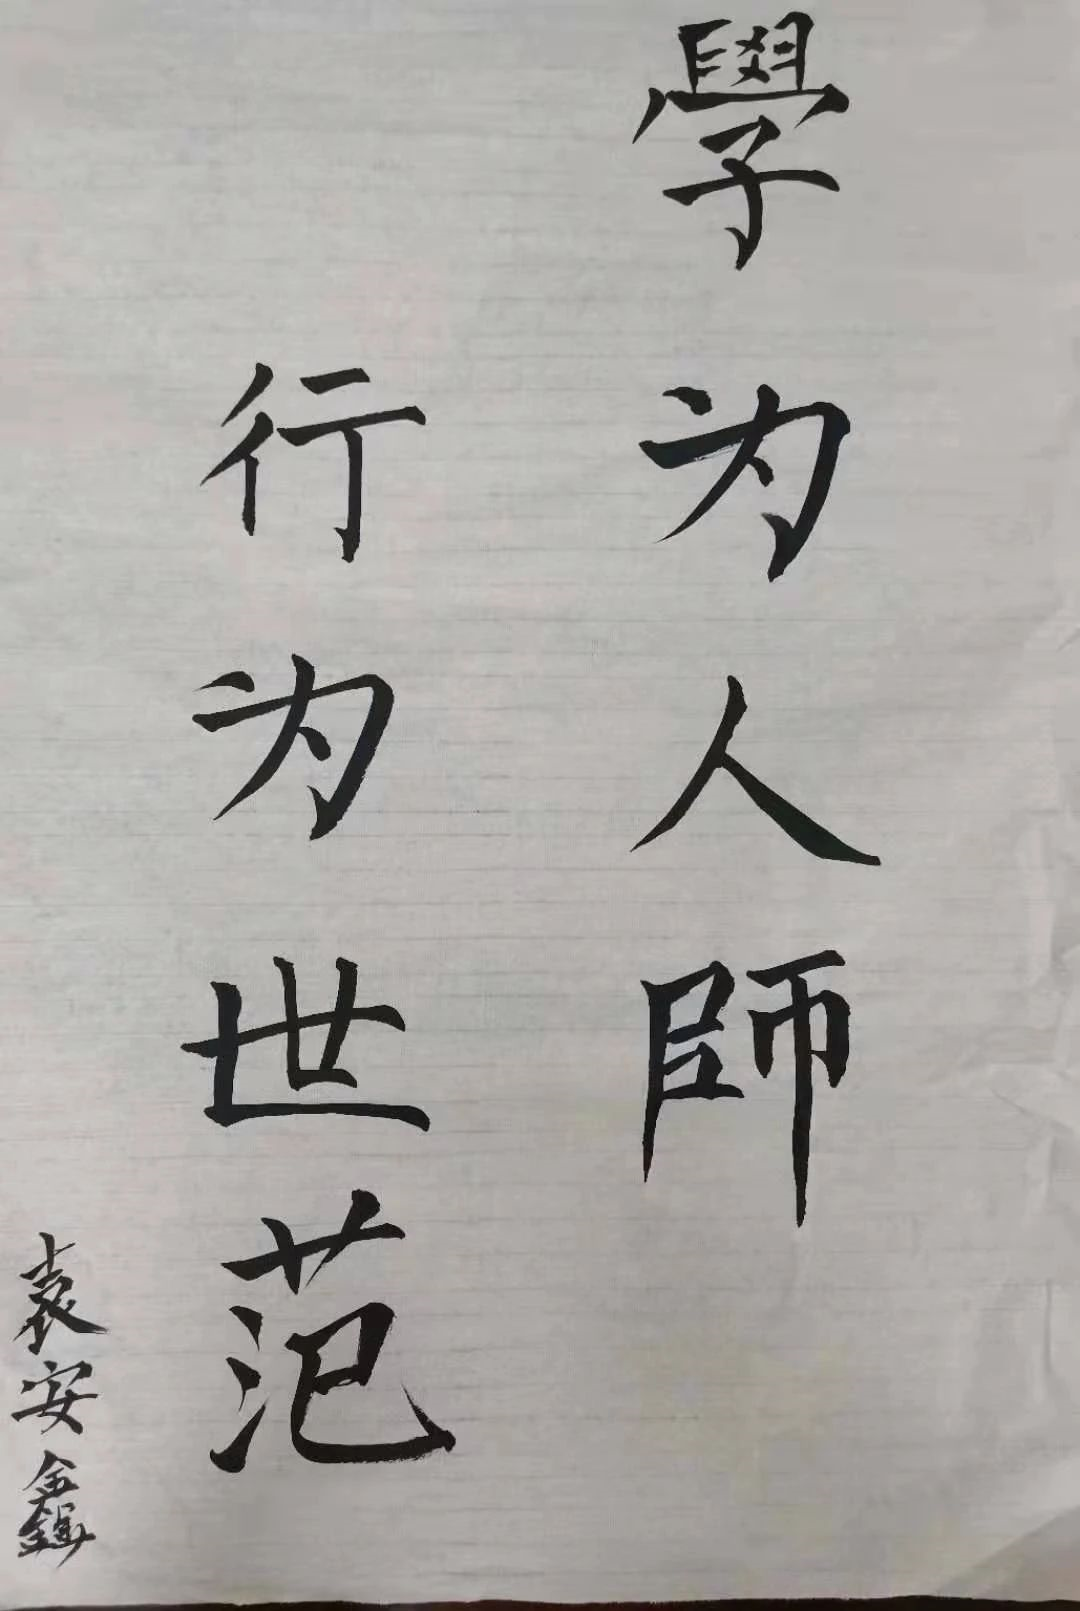 學为人師
行为世范
袁安鑫